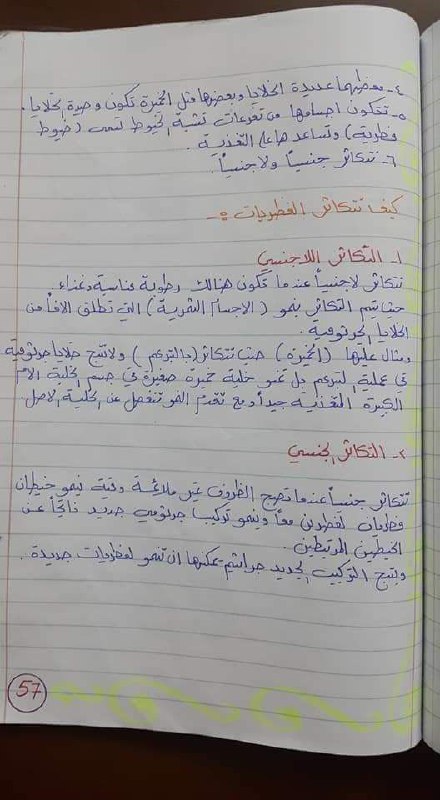 ٤- معظمها عديدة الخلايا وبعضها مثل الخميرة تكون وحيدة الخلايا.
٥- تتكون اجسامها من تفرعات تشبه الخيوط تسمى (خيوط
فطرية) وتساعدها على التغذية.
٦- تتكاثر جنسياً ولاجنسياً.
كيف تتكاثر الفطريات :-
١- التكاثر اللاجنسي
تتكاثر لاجنسياً عندما تكون هنالك رطوبة مناسبة وغذاء.
حيث يتم التكاثر بنمو (الاجسام الثمرية) التي تطلق الافاً من
الخلايا الجرثومية.
ومثال عليها (الخميرة) حيث تتكاثر (بالتبرعم) ولا تنتج خلايا جرثومية
في عملية التبرعم بل تنمو خلية خميرة صغيرة في جسم الخلية الام
الكبيرة المتغذية جيداً ومع تقدم النمو تنفصل عن الخلية الاصل.
٢- التكاثر الجنسي
تتكاثر جنسياً عندما تصبح الظروف غير ملائمة وفيه ينمو خيطان
فطريان لفطرين معاً وينمو تركيب جرثومي جديد ناتجاً عن
الخيطين المرتبطين.
وينتج التركيب الجديد جراثيم يمكنها ان تنمو لفطريات جديدة.
57